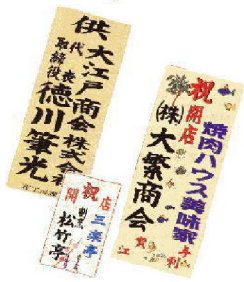 供
大江戸商会株式会社
代表
取締役
徳川筆光
祝
開店
焼肉ハウス美味家
(株)大繁商会
与利
祝
開店
三楽亭
割烹
松竹亭